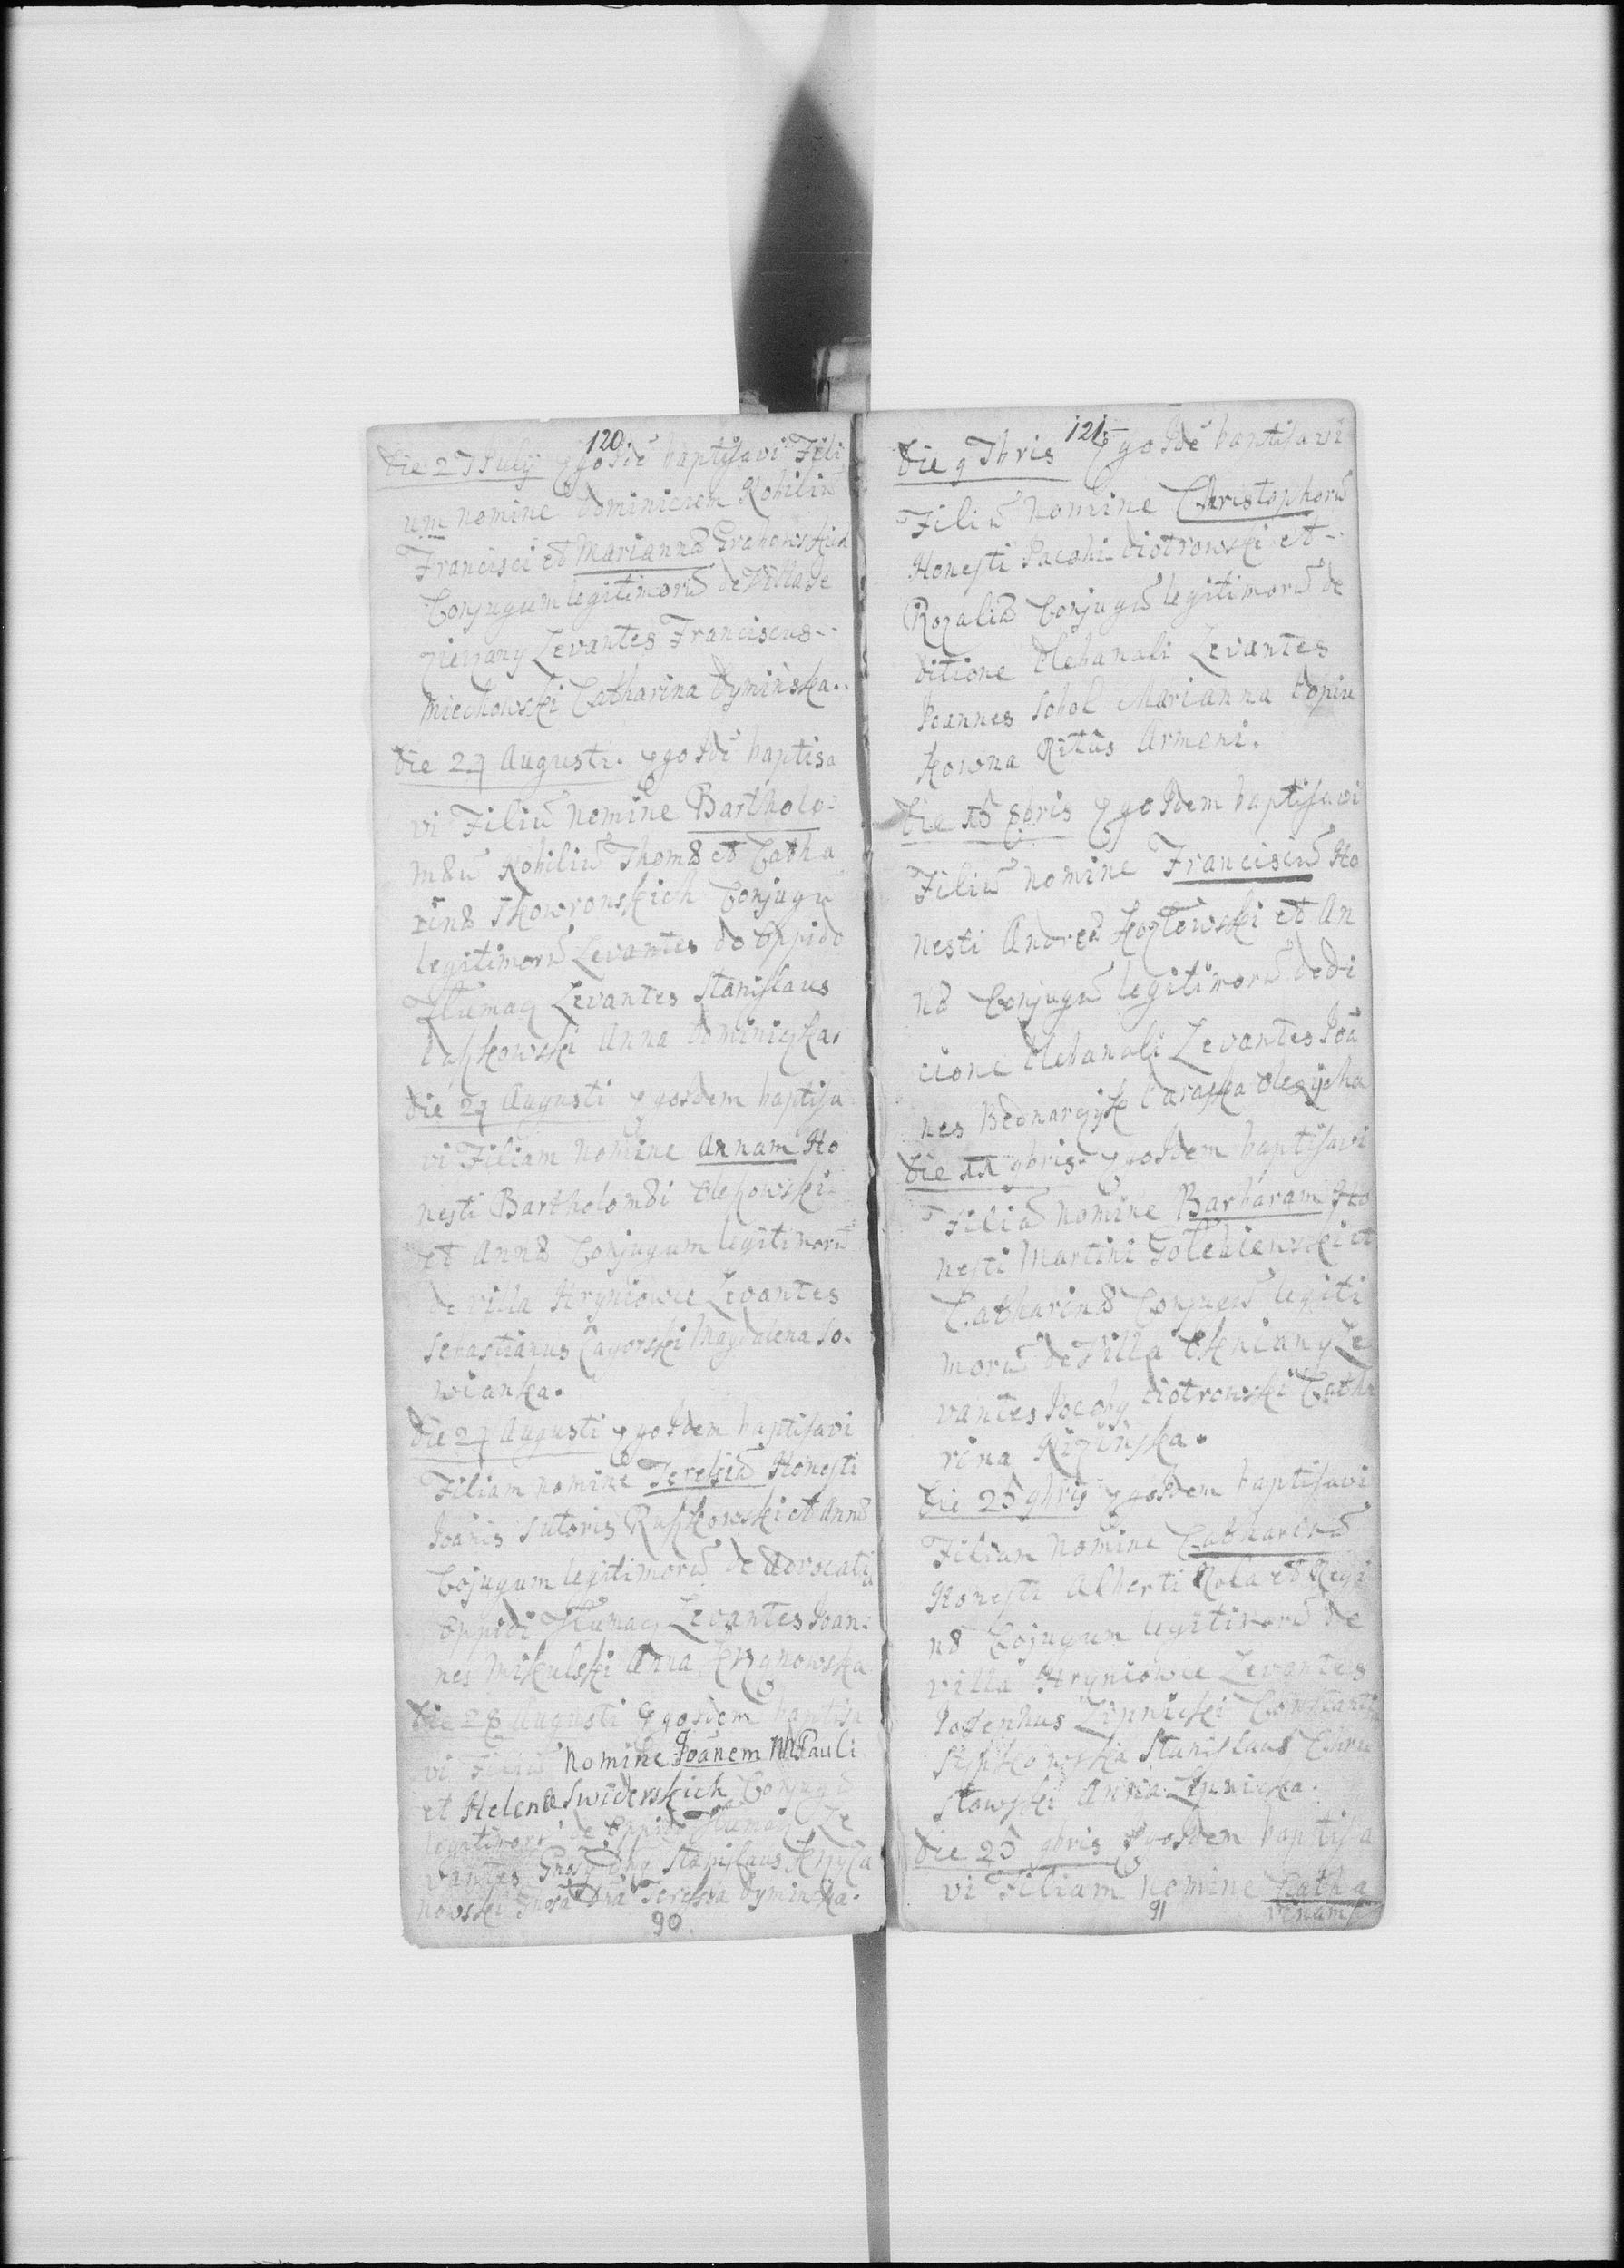 120
Die 27 Julij Ego Idē baptisavi Fili
um nomine Dominicum Nobiliū
Francisci et Marianna Grabowskich
Conjugum legitimorū de Villa De
Levantes Franciscus
Miechowski Catharina Dyminska..
Die 27 Augusti. Ego Idē baptisa
vi Filiū nomine Bartholo=
mæū Nobiliū Thomæ et Catha
rinæ Skowronskich Conjugū
legitimorū Levantes de Oppido
Tłumacz Levantes Stanislaus
Anna Dominiczka.
Die 27 Augusti Ego Idem baptisa
vi Filiam nomine Annam Ho
nesti Bartholomæi Olszowski
et Annæ Conjugum legitimorū
de villa Hryniowce Levantes
Sebastianus Magdalena So.
wianka.
Die 27 Augusti Ego Idem baptisavi
Filiam nomine Teresiā Honesti
Joānis Sutoris Ruszkowski et Annæ
Cojugum legitimorū de Advocatia
Oppidi Tłumacz Levantes Joan=
nes Mikulski Anna
Die 28 Augusti Ego Idem baptisa
vi Filiū Nomine Joānem M Pauli
et Helenæ Swiderskich Conjugū
legitimorū de Oppido Tłumacz Le
vantes Gnosy Dny Stanislaus Krzyża
nowski Gnosa Dna Teresia Dyminska.
90.
121
Die 9 7bris Ego Idē baptisavi
Filiū nomine Christophorū
Honesti Jacobi Piotrowski et
Rozaliæ Conjugū legitimorū de
Ditione Plebanali Levantes
Joannes Sobol Marianna Bopiu
kowna Ritus Armeni.
Die 15 8bris Ego Idem baptisavi
Filiū nomine Franciscū Ho
nesti Andreæ Kozłowski et An
næ Conjugū legitimorū de Di
cione Plebanali Levantes Joā
nes Bednarczyk Paraska
Die 11 9bris Ego Idem baptisavi
Filiā nomine Barbaram Ho
nesti Martini Gołebiewski et
Catharinæ Conjugū legiti
morū de Villa Okniany Le
vantes Jacoby Piotrowski Catha
rina Rizinska.
Die 25 9bris Ego Idem baptisavi
Filiam nomine Catharinā
Honesti Alberti Rola et Regi
næ Cojugum legitimorū de
villa Hryniowce Levantes
Josephus Lipnicki Constanti
Stanislaus Chru
stowski Anna
Die 25 9bris Ego Idem baptisa
vi Filiam nomine Catha
91
rinam